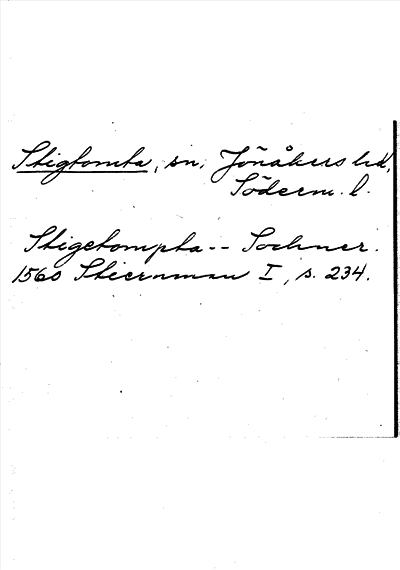 Stigtomta, sn, Jönåkers hd,
Söderm. l.
Stigetompta -- Sochner.
1560 Stiernman I, s. 234.